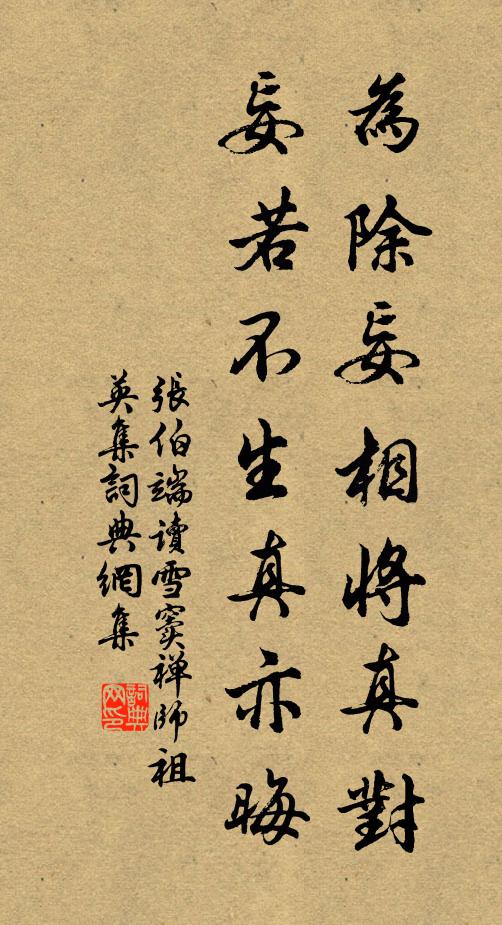 為除妄相將真對
妄若不生真亦晦
張伯端讀雪竇禪師祖
英集詞典網集
詞典
网印